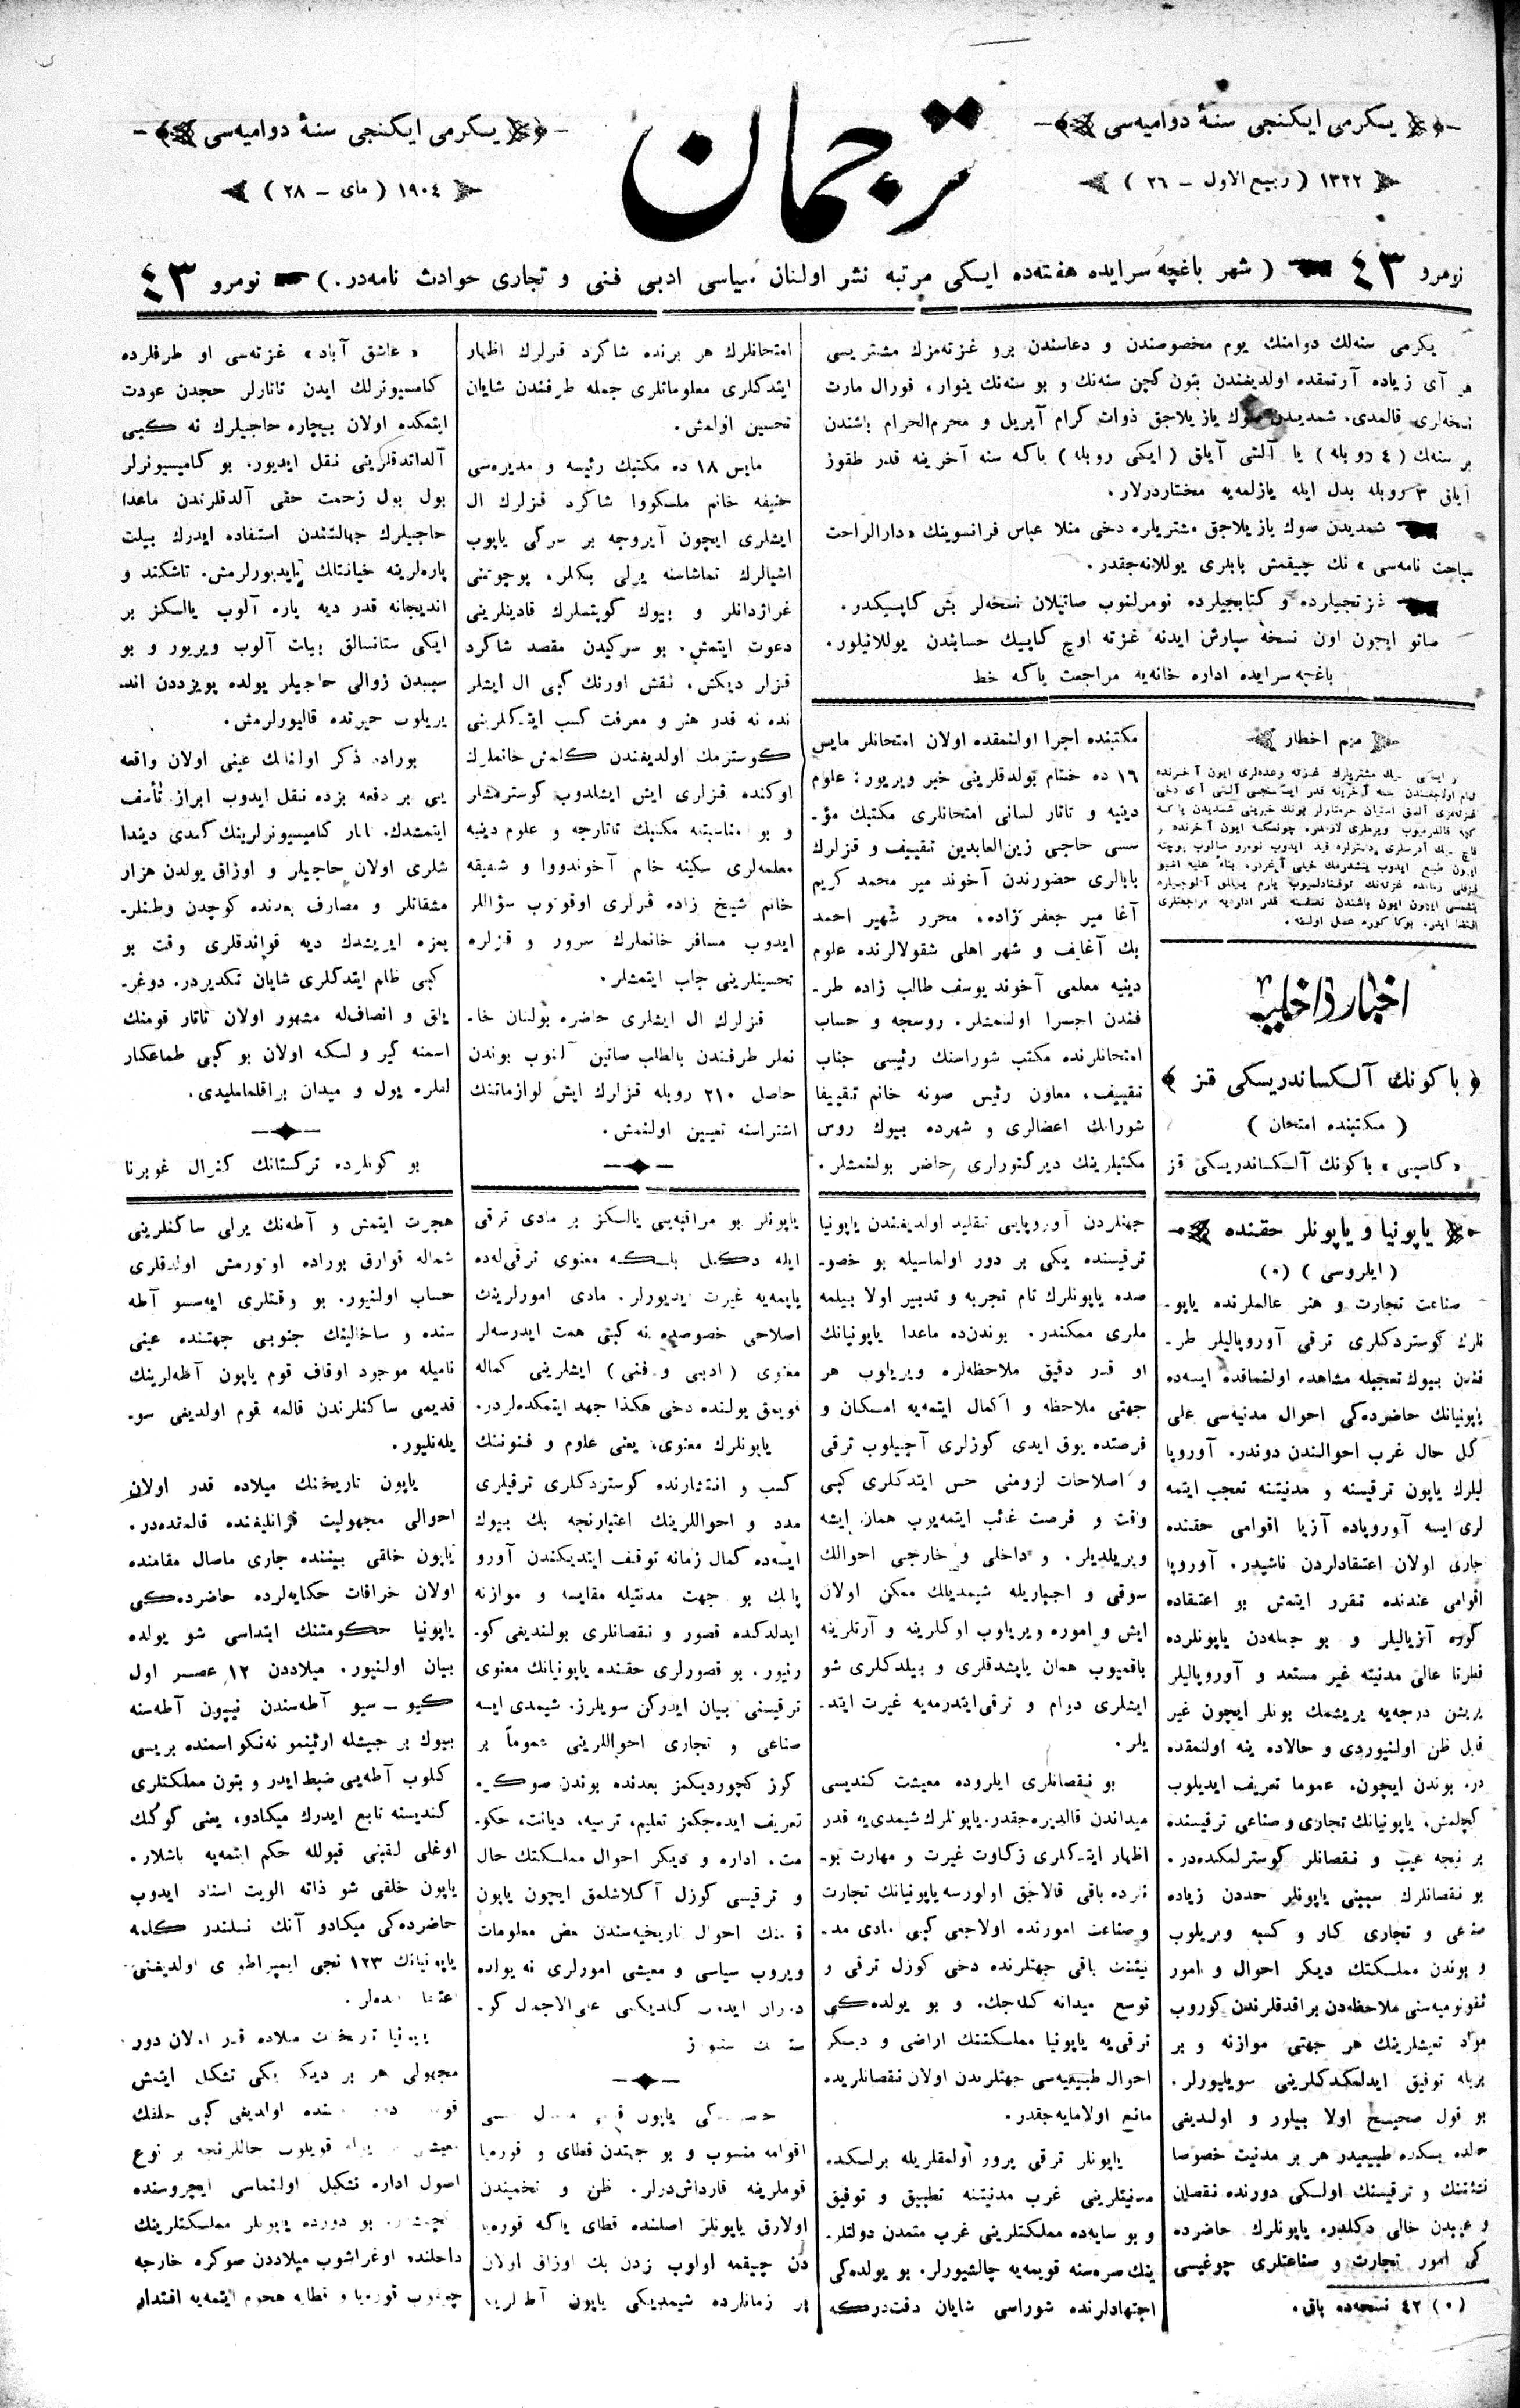 يكرمى ايكنجى سنۀ دواميه‌سى
١٣٢٢ ( ربيع الاول – ٢٦ )
ترجمان
يكرمى ايكنجى سنۀ دواميه‌سى
١٩٠٤ ( ماى – ٢٨ )
نومرو ٤٣ ( شهر باغچه سرايده هفته‌ده ايكى مرتبه نشر اولنان سياسى ادبى فنى و تجارى حوادث نامه‌در. ) نومرو ٤٣
يكرمى سنه‌لك دوامنك يوم مخصوصندن و دعاسندن برو غزته‌مزك مشتريسى
هر آى زياده آرتمقده اولديغندن بتون كچن سنه‌نك و بو سنه‌نك ينوار، فورال مارت
نسخه‌لرى قالمدى. شمديدن صوك يازيلاجق ذوات كرام آپريل و محرم‌الحرام باشندن
بر سنه‌لك ( ٤ روبله ) يا آلتى آيلق ( ايكى روبله ) ياكه سنه آخرينه قدر طقوز
آيلق ٣ روبله بدل ايله يازلمه‌يه مختاردرلار.
شمديدن صوك يازيلاجق مشتريلره دخى منلا عباس فرانسوينك «دارالراحت
سياحت نامه‌سى» نك چيقمش بابلرى يوللانه‌جقدر.
غزتجيلرده و كتابجيلرده نومرلنوب صاتيلان نسخه‌لر بش كاپيكدر.
صاتو ايچون اون نسخه سپارش ايدنه غزته اوچ كاپيك حسابندن يوللانيلور.
باغچه سرايده اداره خانه‌يه مراجعت ياكه خط
مهم اخطار
اخبار داخليه
﴿ باكونك آلكساندريسكى قز ﴾
( مكتبنده امتحان )
«كاسپى» باكونك آلكساندريسكى قز
مكتبنده اجرا اولنمقده اولان امتحانلر مايس
١٦ ده ختام بولدقلرينى خبر ويريور: علوم
دينيه و تاتار لسانى امتحانلرى مكتبك مؤ-
سسى حاجى زين‌العابدين تقييف و قزلرك
بابالرى حضورندن آخوند مير محمد كريم
آغا مير جعفر زاده، محرر شهير احمد
بك آغايف و شهر اهلى شقولالرنده علوم
دينيه معلمى آخوند يوسف طالب زاده طر-
فندن اجرا اولنمشلر. روسجه و حساب
امتحانلرنده مكتب شوراسنك رئيسى جناب
تقييف، معاون رئيس صونه خانم تقييفا
شورانك اعضالرى و شهرده بيوك روس
مكتبلرينك ديركتورلرى حاضر بولنمشلر.
امتحانلرك هر برنده شاكرد قزلرك اظهار
ايتدكلرى معلوماتلرى جمله طرفندن شايان
تحسين اولمش.
مايس ١٨ ده مكتبك رئيسه و مديره‌سى
حنيفه خانم ملكووا شاكرد قزلرك ال
ايشلرى ايچون آيروجه بر سركى ياپوب
اشيالرك تماشاسنه يرلى بكلر، پوچوتنى
غراژدانلر و بيوك كوپتسلرك قادينلرينى
دعوت ايتمش. بو سركيدن مقصد شاكرد
قزلر ديكش، نقش اورنك كبى ال ايشلر
نده نه قدر هنر و معرفت كسب ايتدكلرينى
كوسترمك اولديغندن كلمش خانملرك
اوكنده قزلرى ايش ايشلدوب كوسترمشلر
و بو مناسبتله مكتبك تاتارجه و علوم دينيه
معلمه‌لرى سكينه خانم آخوندووا و شفيقه
خانم شيخ زاده قزلرى اوقوتوب سؤاللر
ايدوب مسافر خانملرك سرور و قزلره
تحسينلرينى جلب ايتمشلر.
قزلرك ال ايشلرى حاضره بولنان خا-
نملر طرفندن بالطلب صاتين آلنوب بوندن
حاصل ٢١٠ روبله قزلرك ايش لوازماتنك
اشتراسنه تعيين اولنمش.
«عاشق آباد» غزته‌سى او طرفلرده
كاميسيونرلك ايدن تاتارلر حجدن عودت
ايتمكده اولان بيچاره حاجيلرك نه كبى
آلداتدقلرينى نقل ايديور. بو كاميسيونرلر
بول بول زحمت حقى آلدقلرندن ماعدا
حاجيلرك جهالتندن استفاده ايدرك بيلت
پاره‌لرينه خيانتلك ايديورلرمش. تاشكند و
انديجانه قدر ديه پاره آلوب يالكز بر
ايكى ستانسالق بيلت آلوب ويريور و بو
سببدن زوالى حاجيلر يولده پويزددن اند-
يريلوب حيرتده قاليورلرمش.
بوراده ذكر اولنانك عينى اولان واقعه
يى بر دفعه بزده نقل ايدوب ابراز تأسف
ايتمشدك. تاتار كاميسيونرلرينك كندى ديندا
شلرى اولان حاجيلر و اوزاق يولدن هزار
مشقاتلر و مصارف بعدنده كوچدن وطنلر-
يمزه ايريشدك ديه قواندقلرى وقت بو
كبى ظلم ايتدكلرى شايان تكديردر. دوغر-
يلق و انصاف‌له مشهور اولان تاتار قومنك
اسمنه كير و لكه اولان بو كبى طماعكار
لقلره يول و ميدان براقلمامليدى.
بو كونلرده تركستانك كنرال غوبرنا
ياپونيا و ياپونلر حقنده
( ايلروسى ) (٠)
صناعت تجارت و هنر عالملرنده ياپو-
نلرك كوستردكلرى ترقى آوروپاليلر طر-
فندن بيوك تعجيله مشاهده اولنماقده ايسه‌ده
ياپونيانك حاضرده‌كى احوال مدنيه‌سى على
كل حال غرب احوالندن دوندر. آوروپا
ليلرك ياپون ترقيسنه و مدنيتنه تعجب ايتمه
لرى ايسه آوروپاده آزيا اقوامى حقنده
جارى اولان اعتقادلردن ناشيدر. آوروپا
اقوامى عندنده تقرر ايتمش بو اعتقاده
كوره آزياليلر و بو جمله‌دن ياپونلرده
فطرتا عالى مدنيته غير مستعد و آوروپاليلر
يريشن درجه‌يه يريشمك بونلر ايچون غير
قابل ظن اولنيوردى و حالاده ينه اولنمقده
در. بوندن ايچون، عموما تعريف ايديلوب
كچلمش، ياپونيانك تجارى و صناعى ترقيسنده
بر نيجه عيب و نقصانلر كوسترلمكده‌در.
بو نقصانلرك سببنى ياپونلر حددن زياده
صناعى و تجارى كار و كسبه ويريلوب
و بوندن مملكتك ديكر احوال و امور
ئقونوميه‌سنى ملاحظه‌دن براقدقلرندن كوروب
مواد تعيشلرينك هر جهتى موازنه و بر
بريله توفيق ايدلمكدكلرينى سويليورلر.
بو قول صحيح اولا بيلور و اولديغى
حالده بكده طبيعيدر هر بر مدنيت خصوصا
و عيبدن خالى دكلدر. ياپونلرك حاضرده
كى امور تجارت و صناعتلرى چوغيسى
(٠) ٤٢ نسخه‌ده باق.
جهتلردن آوروپايى تقليد اولديغندن ياپونيا
ترقيسنده يكى بر دور اولماسيله بو خصو-
صده ياپونلرك تام تجربه و تدبير اولا بيلمه
ملرى ممكندر. بوندن‌ده ماعدا ياپونيانك
او قدر دقيق ملاحظه‌لره ويريلوب هر
جهتى ملاحظه و اكمال ايتمه‌يه امكان و
فرصتده يوق ايدى كوزلرى آچيلوب ترقى
و اصلاحات لزومنى حس ايتدكلرى كبى
وقت و فرصت غائب ايتمه‌يرب همان ايشه
ويريلديلر. و داخلى و خارجى احوالك
سوقى و اجباريله شيمديلك ممكن اولان
ايش و اموره ويريلوب اوكلرينه و آرتلرينه
باقميوب همان ياپشدقلرى و بيلدكلرى شو
ايشلرى دوام و ترقى ايتدرمه‌يه غيرت ايتد-
يلر.
بو نقصانلرى ايلروده معيشت كنديسى
ميداندن قالديره‌جقدر. ياپونلرك شيمدى‌يه قدر
اظهار ايتدكلرى زكاوت غيرت و مهارت بو-
نلرده باقى قالاجق اولورسه ياپونيانك تجارت
و صناعت امورنده اولاجغى كبى مادى مد-
نيتنك باقى جهتلرنده دخى كوزل ترقى و
توسع ميدانه كله‌جك. و بو يولده‌كى
ترقى‌يه ياپونيا مملكتنك اراضى و ديكر
احوال طبيعيه‌سى جهتلرندن اولان نقصانلريده
مانع اولامايه‌جقدر.
ياپونلر ترقى پرور اولمقلريله برلكده
مدنيتلرينى غرب مدنيتنه تطبيق و توفيق
و بو سايه‌ده مملكتلرينى غرب متمدن دولتلر-
ينك صره‌سنه قويمه‌يه چالشيورلر. بو يولده‌كى
اجتهادلرنده شوراسى شايان دقت‌دركه
ياپونلر بو مراقبه‌يى يالكز بر مادى ترقى
ايله دكل بلكه معنوى ترقى‌له‌ده
ياپمه‌يه غيرت ايديورلر. مادى امورلرينك
اصلاحى خصوصده نه كبى همت ايدرسه‌لر
معنوى ( ادبى و فنى ) ايشلرينى كماله
قويمق يولنده دخى هكذا جهد ايتمكده‌لردر.
ياپونلرك معنوى، يعنى علوم و فنوننك
كسب و انتشارنده كوستردكلرى ترقيلرى
مدد و احواللرينك اعتبارنجه بك بيوك
ايسه‌ده كمال زمانه توقف ايتديكندن آورو
پانك بو جهت مدنتيله مقايسه و موازنه
ايدلدكده قصور و نقصانلرى بولنديغى كو-
رنيور. بو قصورلرى حقنده ياپونيانك معنوى
ترقيسنى بيان ايدركن سويلرز. شيمدى ايسه
صناعى و تجارى احواللرينى عموماً بر
كوز كچورديكمز بعدنده بوندن صوكره
تعريف ايده‌جكمز تعليم، تربيه، ديانت، حكو-
مت، اداره و ديكر احوال مملكتك حال
و ترقيسى كوزل آكلاشلمق ايچون ياپون
احوال تاريخيه‌سندن بعض معلومات
ويروب سياسى و معيشى امورلرى نه يولده
على‌الاجمال كو-
اقوامه منسوب و بو جهتدن قطاى و قوره‌يا
قوملرينه قارداش‌درلر. ظن و تخميندن
اولارق ياپونلر اصلنده قطاى ياكه قوره‌يا
دن چيقمه اولوب زدن بك اوزاق اولان
بر زمانلرده شيمديكى ياپون آطه‌لرينه
هجرت ايتمش و آطه‌نك يرلى ساكنلرينى
شماله قوارق بوراده اوتورمش اولدقلرى
حساب اولنيور. بو وقتلرى ايه‌سسو آطه
سنده و ساخالينك جنوبى جهتنده عينى
ناميله موجود اوفاق قوم ياپون آطه‌لرينك
قديمى ساكنلرندن قالمه قوم اولديغى سو-
يله‌نليور.
ياپون تاريخنك ميلاده قدر اولان
احوالى مجهوليت قرانليغنده قالمقده‌در.
ياپون خلقى بيننده جارى ماصال مقامنده
اولان خرافات حكايه‌لرده حاضرده‌كى
ياپونيا حكومتنك ابتداسى شو يولده
بيان اولنيور. ميلاددن ١٢ عصر اول
كيو – سيو آطه‌سندن نيپون آطه‌سنه
بيوك بر جيشله ارئينمو نه‌نكو اسمنده بريسى
كلوب آطه‌يى ضبط ايدر و بتون مملكتلرى
كنديسنه تابع ايدرك ميكادو، يعنى كوكك
اوغلى لقبنى قبولله حكم ايتمه‌يه باشلار.
ياپون خلقى شو ذاته الويت اسناد ايدوب
حاضرده‌كى ميكادو آنك نسلندر كلمه
ياپونيانك ١٢٣ نجى ايمپراطورى اولديغنى
ميلاده قدر اولان دور
مجهولى هر بر ديكر يكى تشكل ايتمش
اولديغى كبى خلقك
قويلوب حاللرنجه بر نوع
اصول اداره تشكيل اولنماسى ايچروسنده
بو دورده ياپونلر مملكتلرينك
داخلنده اوغراشوب ميلاددن صوكره خارجه
چيقوب قوره‌يا و قطايه هجوم ايتمه‌يه اقتدار